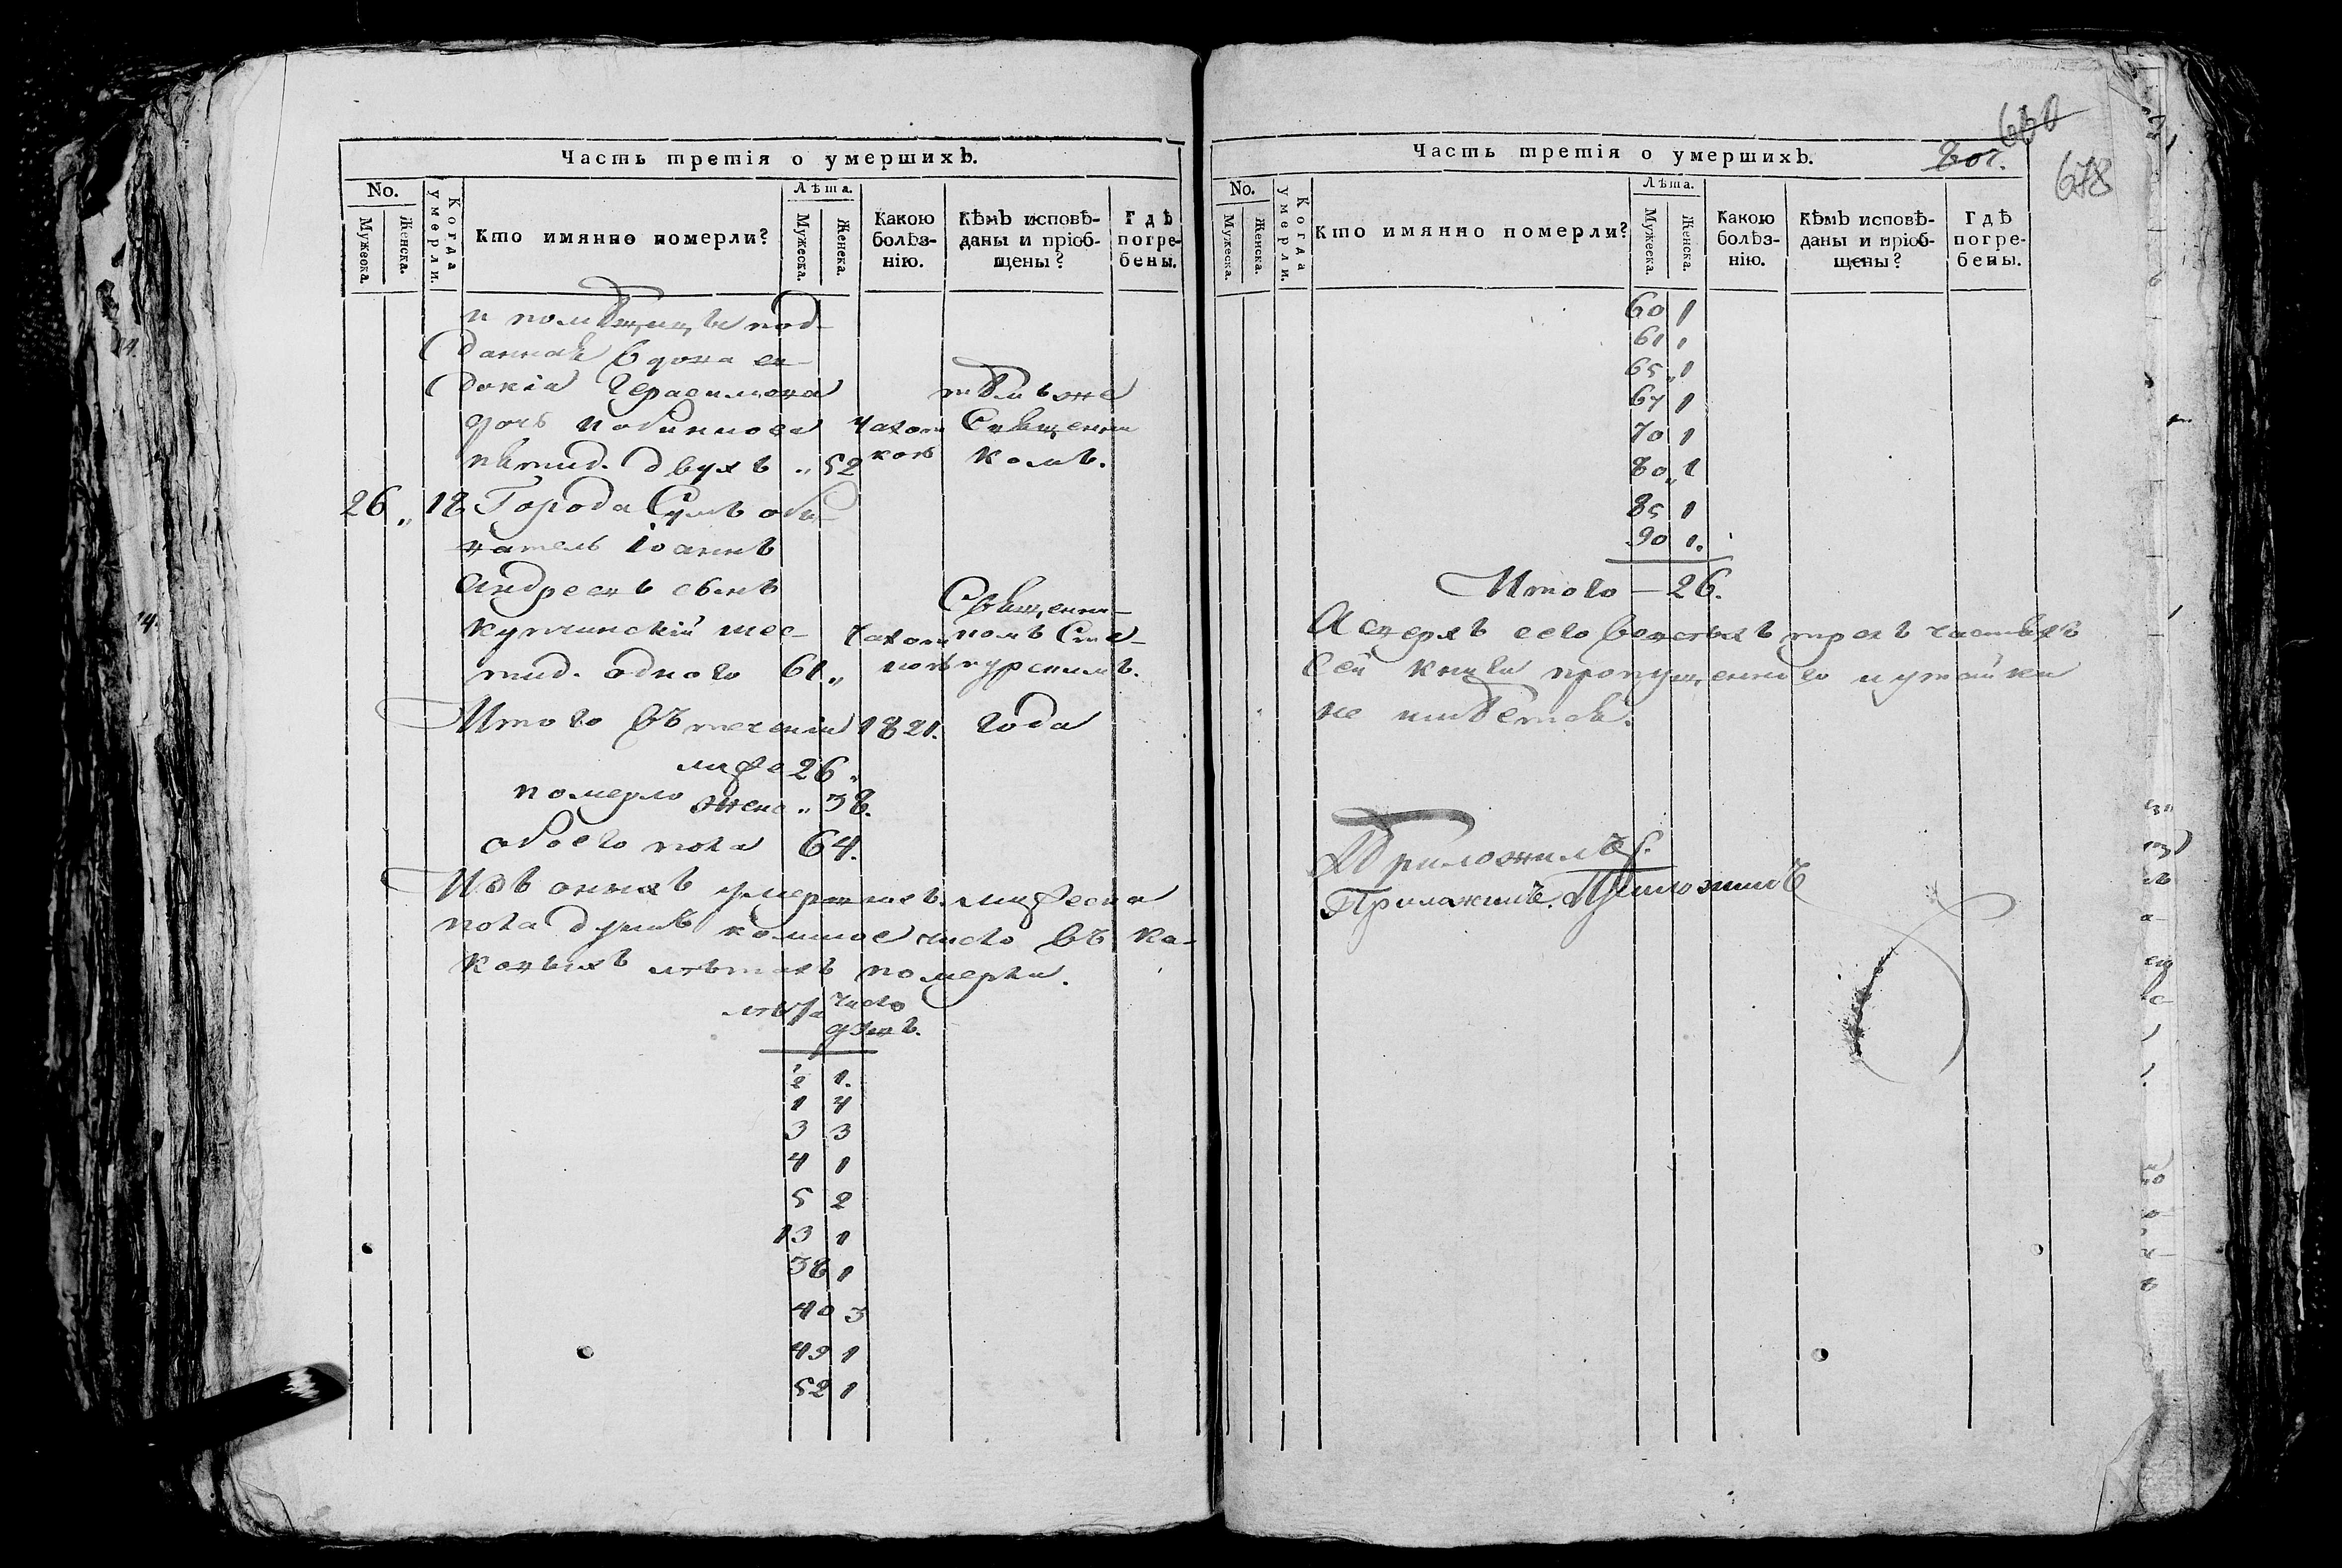 Часть третія о умершихъ.
No. Лѣта.
Мужеска. Женска. Когда умерли. Кто имянно померли? Мужеска. Женска. Какою болѣзнію. Кѣмъ исповѣданы и пріобщены? Гдѣ погребены.
и помѣщицѣ под-
данная вдова ев-
докіа Герасимова тѣмъ же
дочь чахот Священни
пятид. двухъ „ 52 кою комъ.
26 „ 18 Города Сумъ обы-
ватель Іоаннъ
Андреевъ сынъ
Купчинскій шес- Чахот Священни-
тид. одного 61 „ кою комъ
Итого въ теченіи 1821. года
муже 26 „
померло жено „ 38.
обоего пола 64.
Изъ оныхъ умершихъ мужеска
пола душъ число въ ка-
ковыхъ лѣтахъ померли.
лѣта число
душъ.
1/2 1.
1 4
3 3
4 1
5 2
13 1
38 1
40 3
49 1
52 1
Часть третія о умершихъ.
801.
660
678
No. Лѣта.
Мужеска. Женска. Когда умерли. Кто имянно померли? Мужеска. Женска. Какою болѣзнію. Кѣмъ исповѣданы и пріобщены? Гдѣ погребены.
60 1
61 1
65 „ 1
67 1
70 1
80 „ 1
85 1
90 1.
Итого — 26.
А сверхъ сего во всѣхъ трехъ частяхъ
сей книги пропущеннаго и утайки
не имѣется.